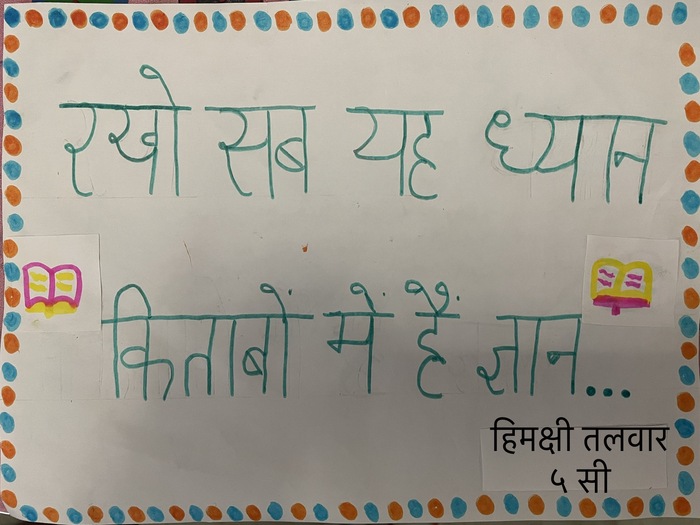 रखो सब यह ध्यान
किताबों में हैं ज्ञान...
हिमक्षी तलवार
५ सी